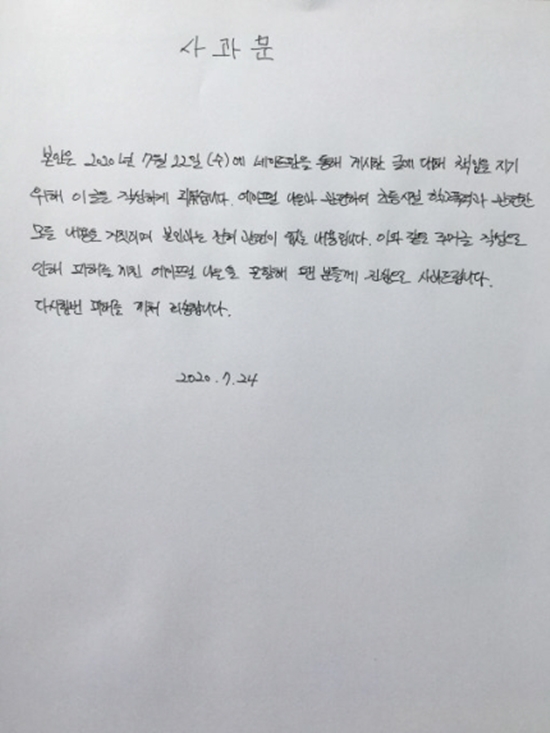 사과문
본인은 2020년 7월 22일(수)에 네이트판을 통해 게시한 글에 대해 책임을 지기
위해 이 글을 작성하게 되었습니다. 에이프릴 나은과 관련하여 초등시절 학교폭력과 관련한
모든 내용은 거짓이며 본인과는 전혀 관련이 없는 내용입니다. 이와 같은 루머글 작성으로
인해 피해를 끼친 에이프릴 나은을 포함해 모든 분들께 진심으로 사죄드립니다.
다시한번 피해를 끼쳐 죄송합니다.
2020.7.24